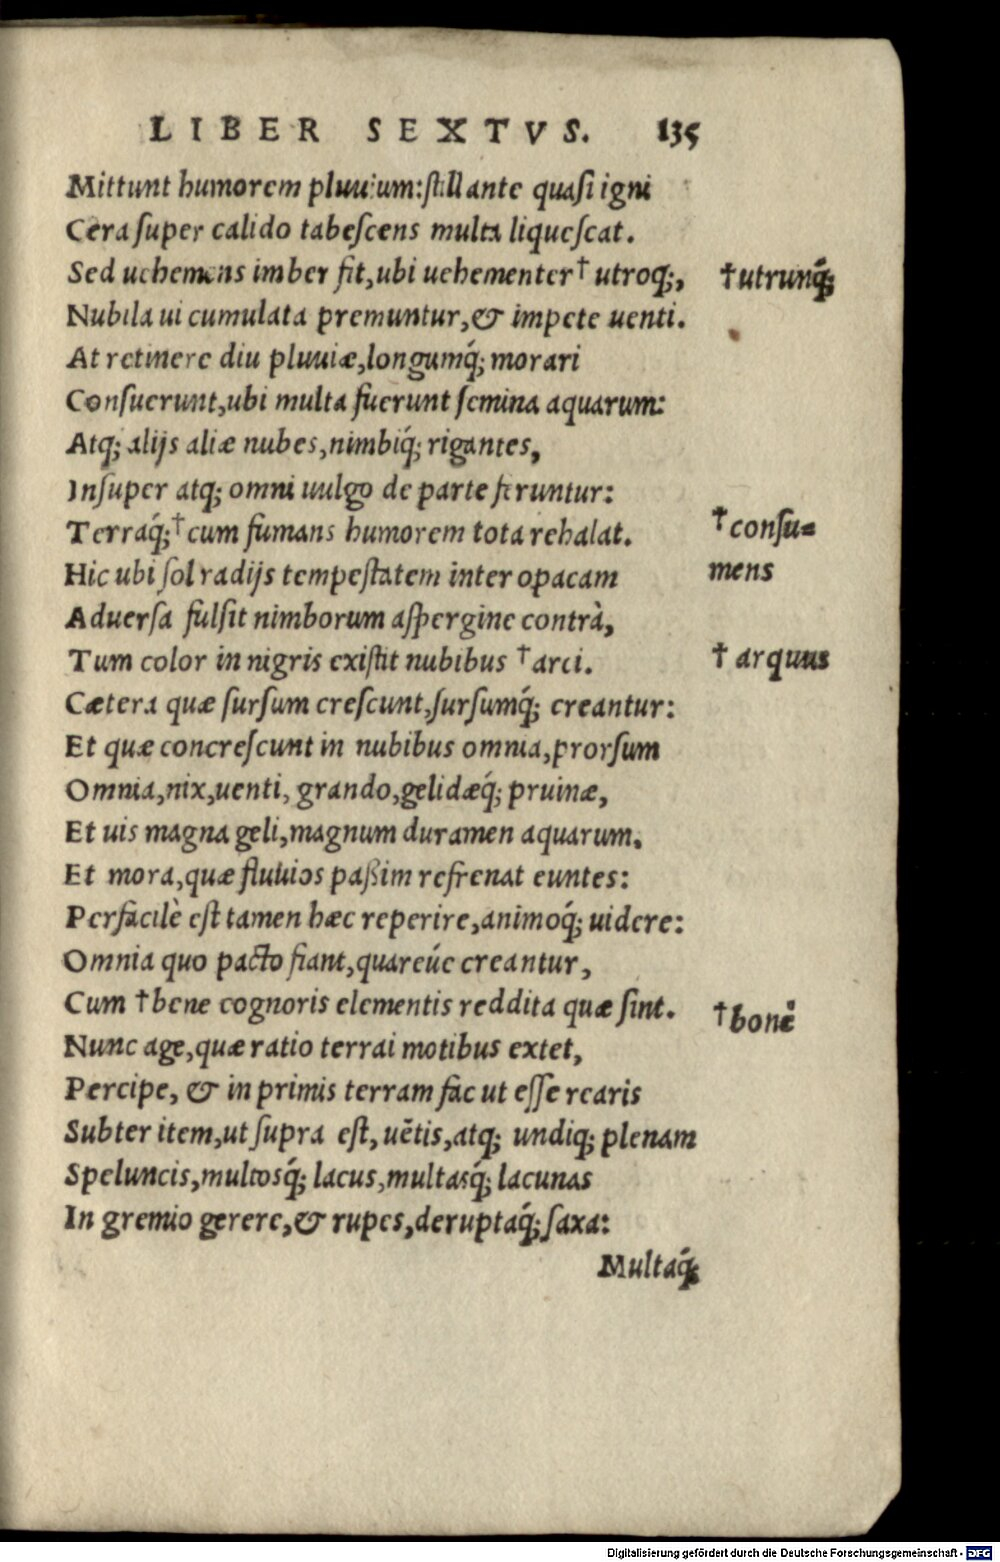 LIBER SEXTVS. 135
Mittunt humorem pluuium: ſtillante quaſi igni
Cera ſuper calido tabeſcens multa liqueſcat.
Sed uehemens imber fit, ubi uehementer † utroq;, † utrunq́;
Nubila ui cumulata premuntur, & impete uenti.
At retinere diu pluuiæ, longumq́; morari
Conſuerunt, ubi multa fuerunt ſemina aquarum:
Atq; alijs aliæ nubes, nimbiq́; rigantes,
Inſuper atq; omni uulgo de parte feruntur:
Terraq́; † cum fumans humorem tota rehalat. † conſu=
Hic ubi ſol radijs tempeſtatem inter opacam mens
Aduerſa fulſit nimborum aſpergine contrà,
Tum color in nigris exiſtit nubibus † arci. † arquus
Cætera quæ ſurſum creſcunt, ſurſumq́; creantur:
Et quæ concreſcunt in nubibus omnia, prorſum
Omnia, nix, uenti, grando, gelidæq́; pruinæ,
Et uis magna geli, magnum duramen aquarum.
Et mora, quæ fluuios paßim refrenat euntes:
Perfacilè eſt tamen hæc reperire, animoq́; uidere:
Omnia quo pacto fiant, quareúe creantur,
Cum † bene cognoris elementis reddita quæ ſint. † bonè
Nunc age, quæ ratio terrai motibus extet,
Percipe, & in primis terram fac ut eſſe rearis
Subter item, ut ſupra eſt, uẽtis, atq; undiq; plenam
Speluncis, multosq́; lacus, multasq́; lacunas
In gremio gerere, & rupes, deruptaq́; ſaxa:
Multaq́;
Digitalisierung gefördert durch die Deutsche Forschungsgemeinschaft - DFG